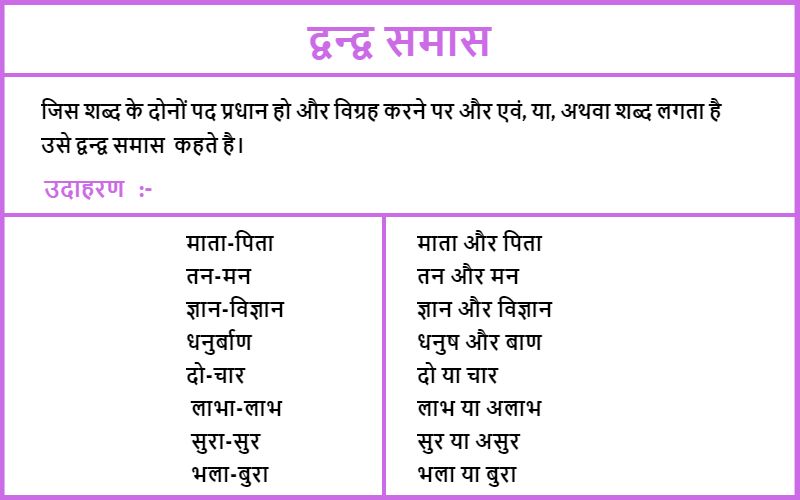 द्वन्द्व समास
जिस शब्द के दोनों पद प्रधान हो और विग्रह करने पर और एवं, या, अथवा शब्द लगता है
उसे द्वन्द्व समास कहते है।
उदाहरण :-
माता-पिता माता और पिता
तन-मन तन और मन
ज्ञान-विज्ञान ज्ञान और विज्ञान
धनुर्बाण धनुष और बाण
दो-चार दो या चार
लाभा-लाभ लाभ या अलाभ
सुरा-सुर सुर या असुर
भला-बुरा भला या बुरा